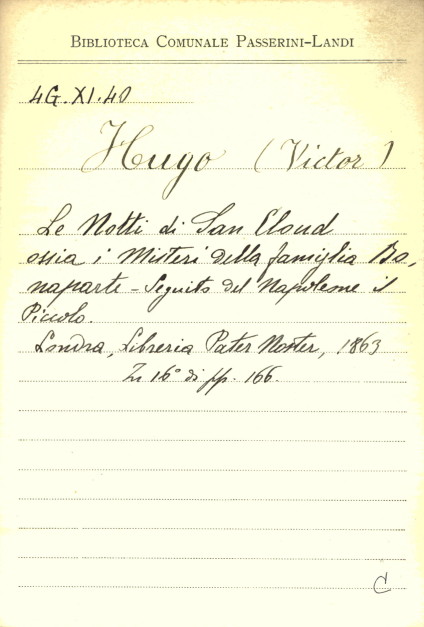 BIBLIOTECA COMUNALE PASSERINI-LANDI
4G.XI.40
Hugo (Victor)
Le Notti di San Cloud
ossia i Misteri della famiglia Bo,
naparte - Seguito del Napoleone il
Piccolo.
Londra, Libreria Pater Noster, 1863
In 16° di pp. 166.
C